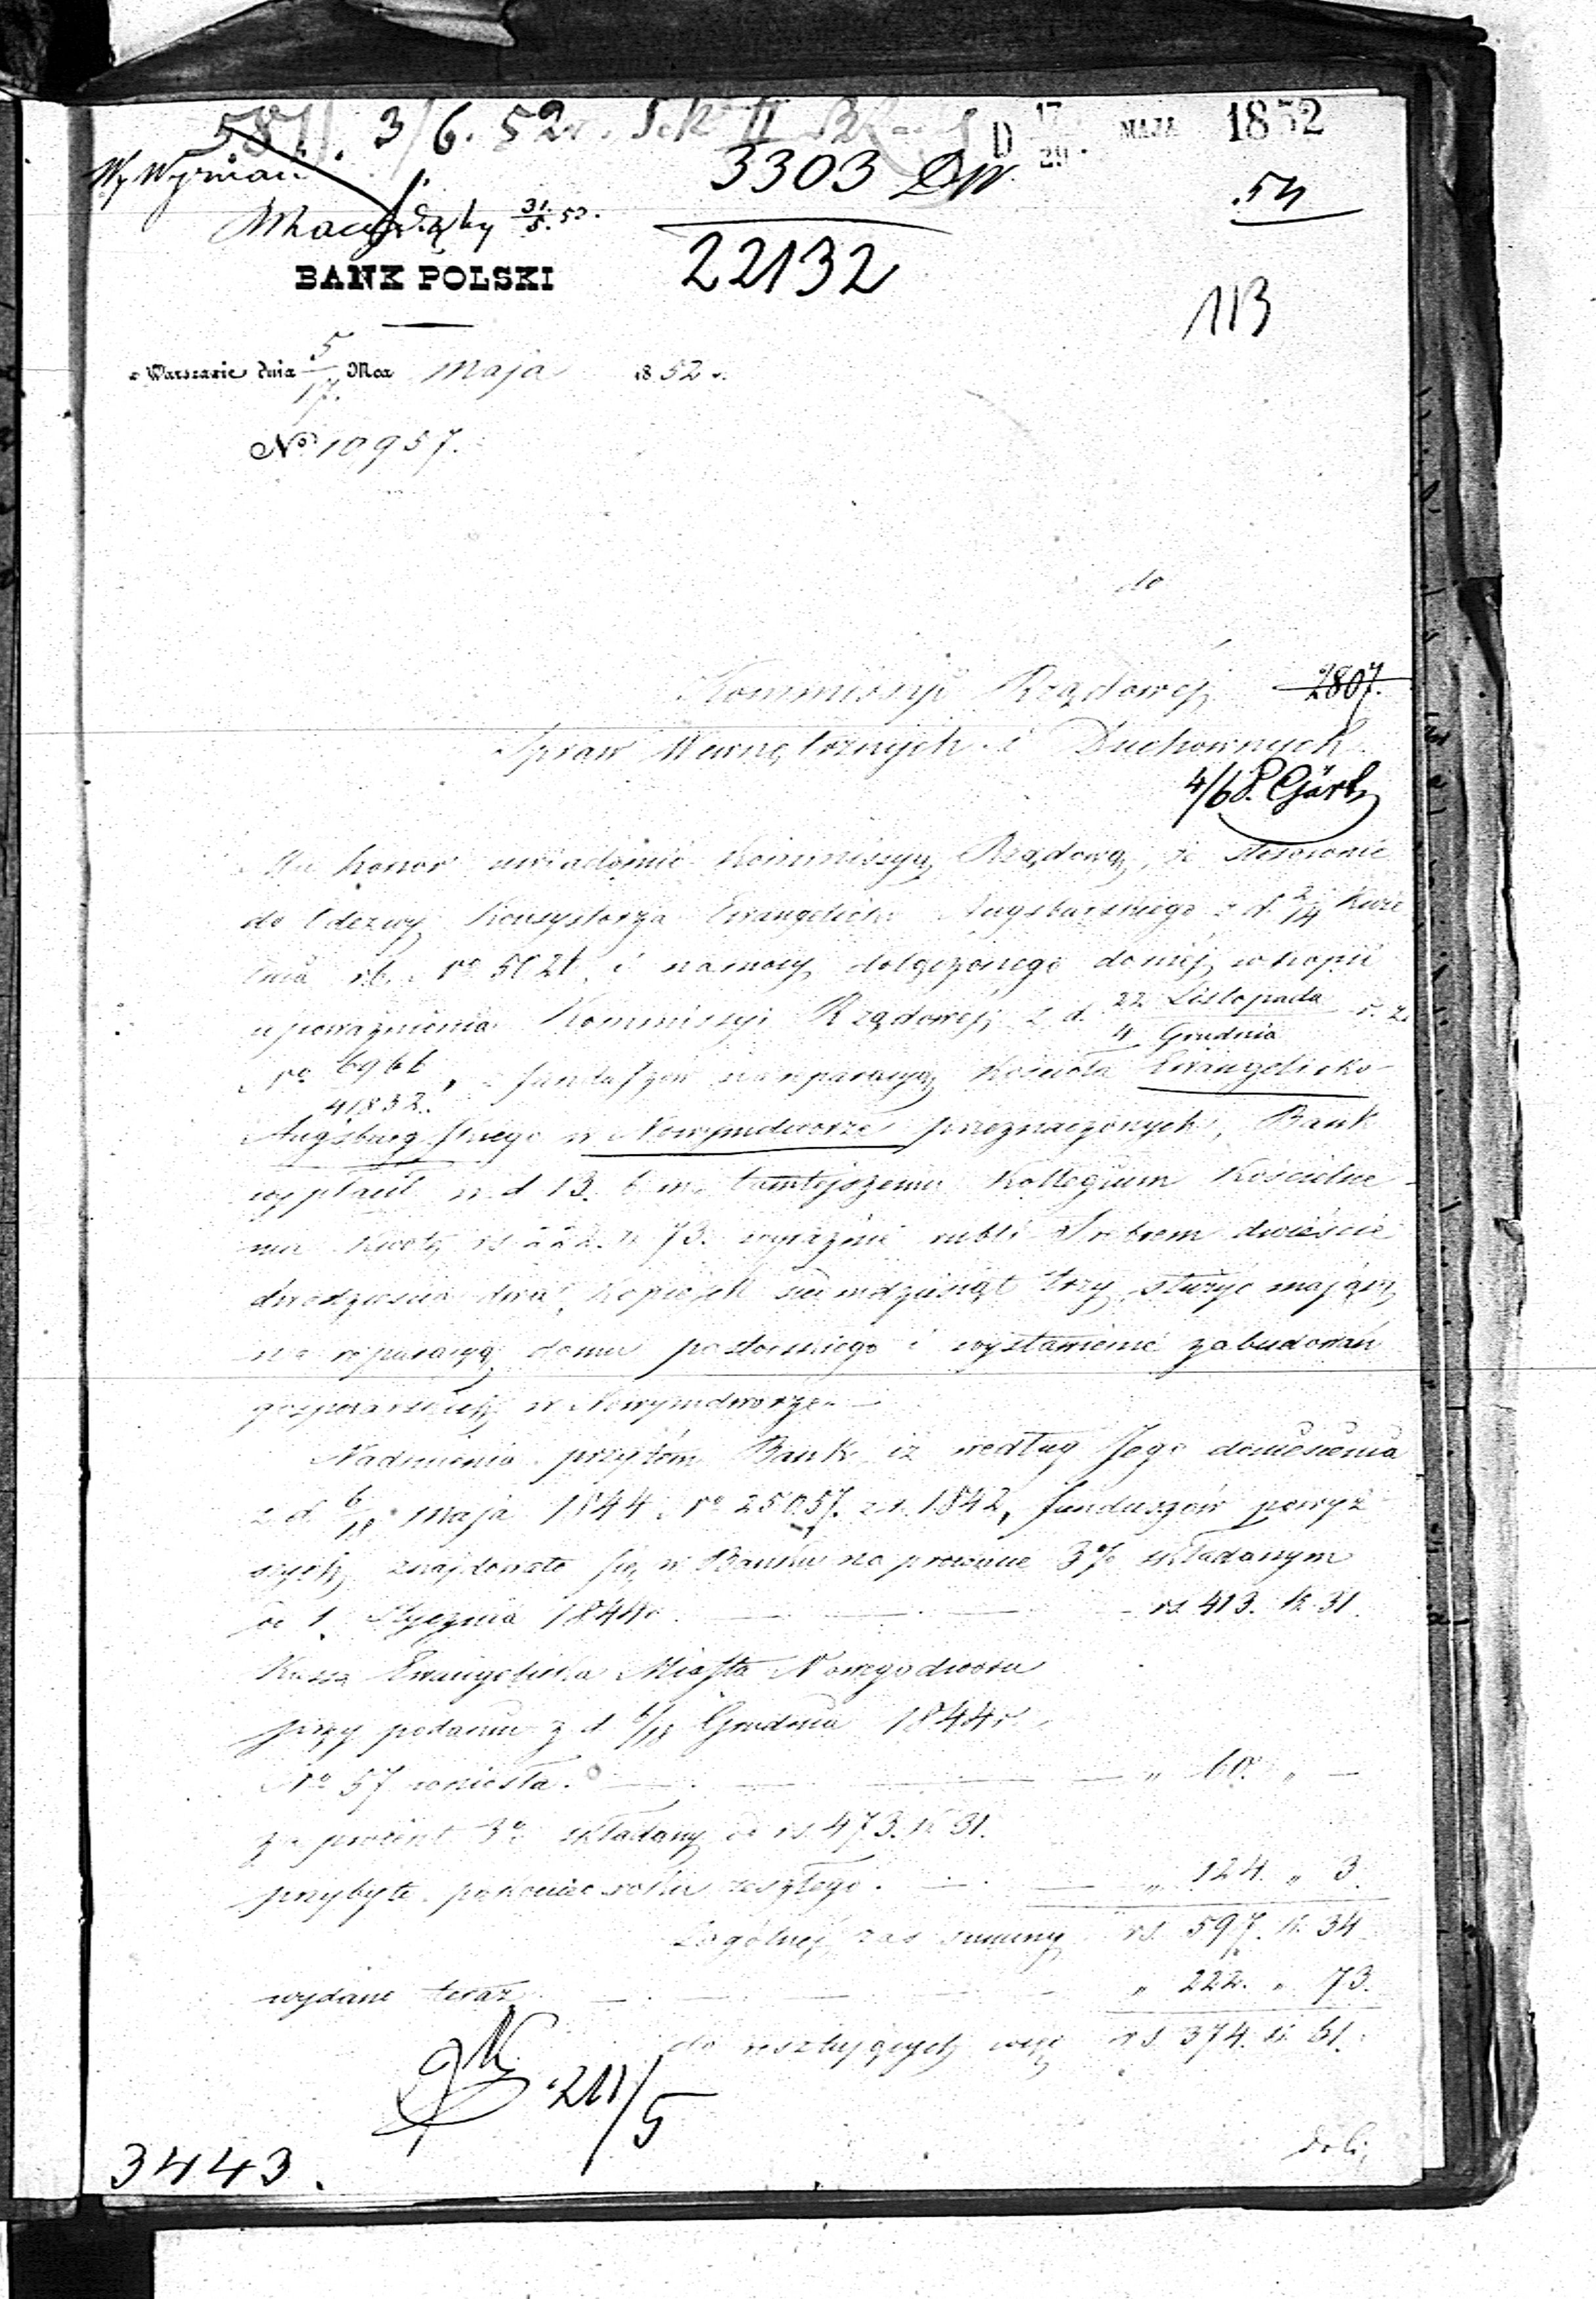 3/6. 52 r. Sek II D 17/29 MAJA 1852
Wy Wyznań 3303 DW. 54
31/5. 52.
22132
BANK POLSKI
113
w Warszawie dnia 5/17. Mca Maja 1852 r.
No 10957.
do
Kommissyi Rządowej 2807.
Spraw Wewnętrznych i Duchownych
4/6 P. Gürtz
Ma honor uwiadomić Kommissyę Rządową, że stosownie
do Odezwy Konsystorza Ewangelicko Augsburskiego z d. 2/14 Kwie
tnia rb. No 502 i na mocy dołączonego do niej w kopii
upoważnienia Kommissyi Rządowej z d. 22 Listopada / 4 Grudnia r. z.
No 6966/41832, z funduszów na reparacyę Kościoła Ewangelicko
Augsburgskiego w Nowymdworze przeznaczonych, Bank
wypłacił w d 13. b. m. tamtejszemu Kollegium Kościelne
mu kwotę rs 222. k 73. wyraźnie rubli Srebrem dwieście
dwadzieścia dwa, kopiejek siedmdziesiąt trzy, służyć mającą
na reparacyą domu pastorskiego i wystawienie zabudowań
gospodarskich w Nowymdworze.
Nadmienia przytém Bank iż według Jego doniesienia
z d. 6/18 Maja 1844 No 25057. z r. 1842, funduszów powyż
szych znajdowało się w Banku na procencie 3% składanym
od 1 Stycznia 1844 r. rs 413. k 31.
Kassa Ewangelicka Miasta Nowegodworu
przy podaniu z d. 6/18 Grudnia 1844 r.
No 57 wniosła. " 60. " —
za procent 3% składany od rs. 473. k 31.
przybyło pokoniec roku zeszłego. " 124. " 3.
Z ogólnej zaś summy rs. 597. k. 34
wydane teraz " 222. " 73.
do resztujących więc rs. 374. k. 61.
3443.